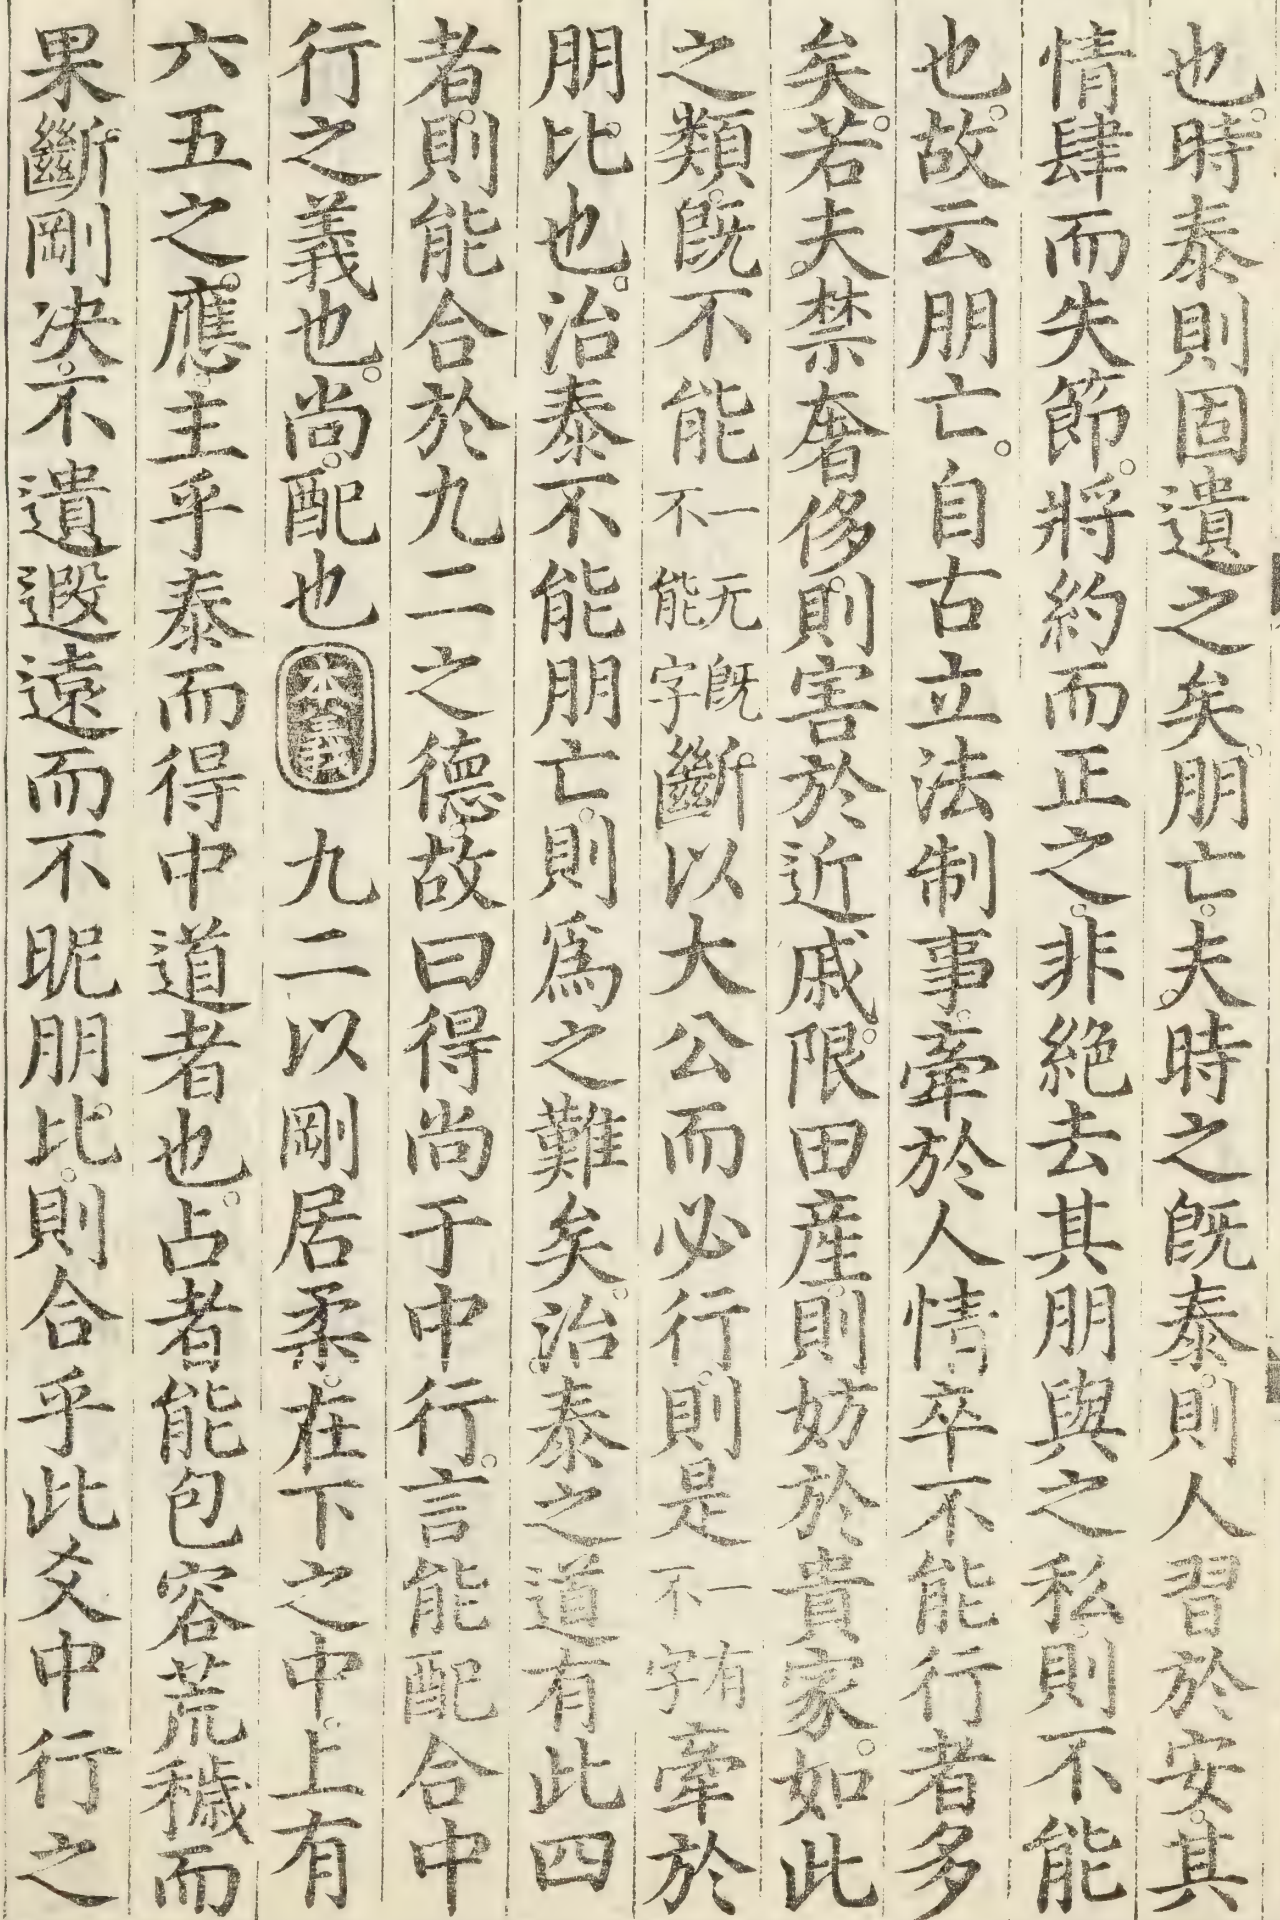 也。時泰則固遺之矣。朋亡。夫時之既泰。則人習於安。其
情肆而失節。將約而正之。非絶去其朋與之私。則不能
也。故云朋亡。自古立法制事。牽於人情卒不能行者多
矣。若夫禁奢侈。則害於近戚。限田産。則妨於貴家。如此
之類。既不能一无既不能字斷。以大公而必行。則是一有不字牽於
朋比也。治泰不能朋亡。則爲之難矣。治泰之道有此四
者。則能合於九二之德。故曰得尚于中行。言能配合中
行之義也。尚。配也本義九二以剛居柔。在下之中。上有
六五之應。主乎泰而得中道者也。占者能包容荒穢而
果斷剛决。不遺遐遠而不昵朋比。則合乎此爻中行之